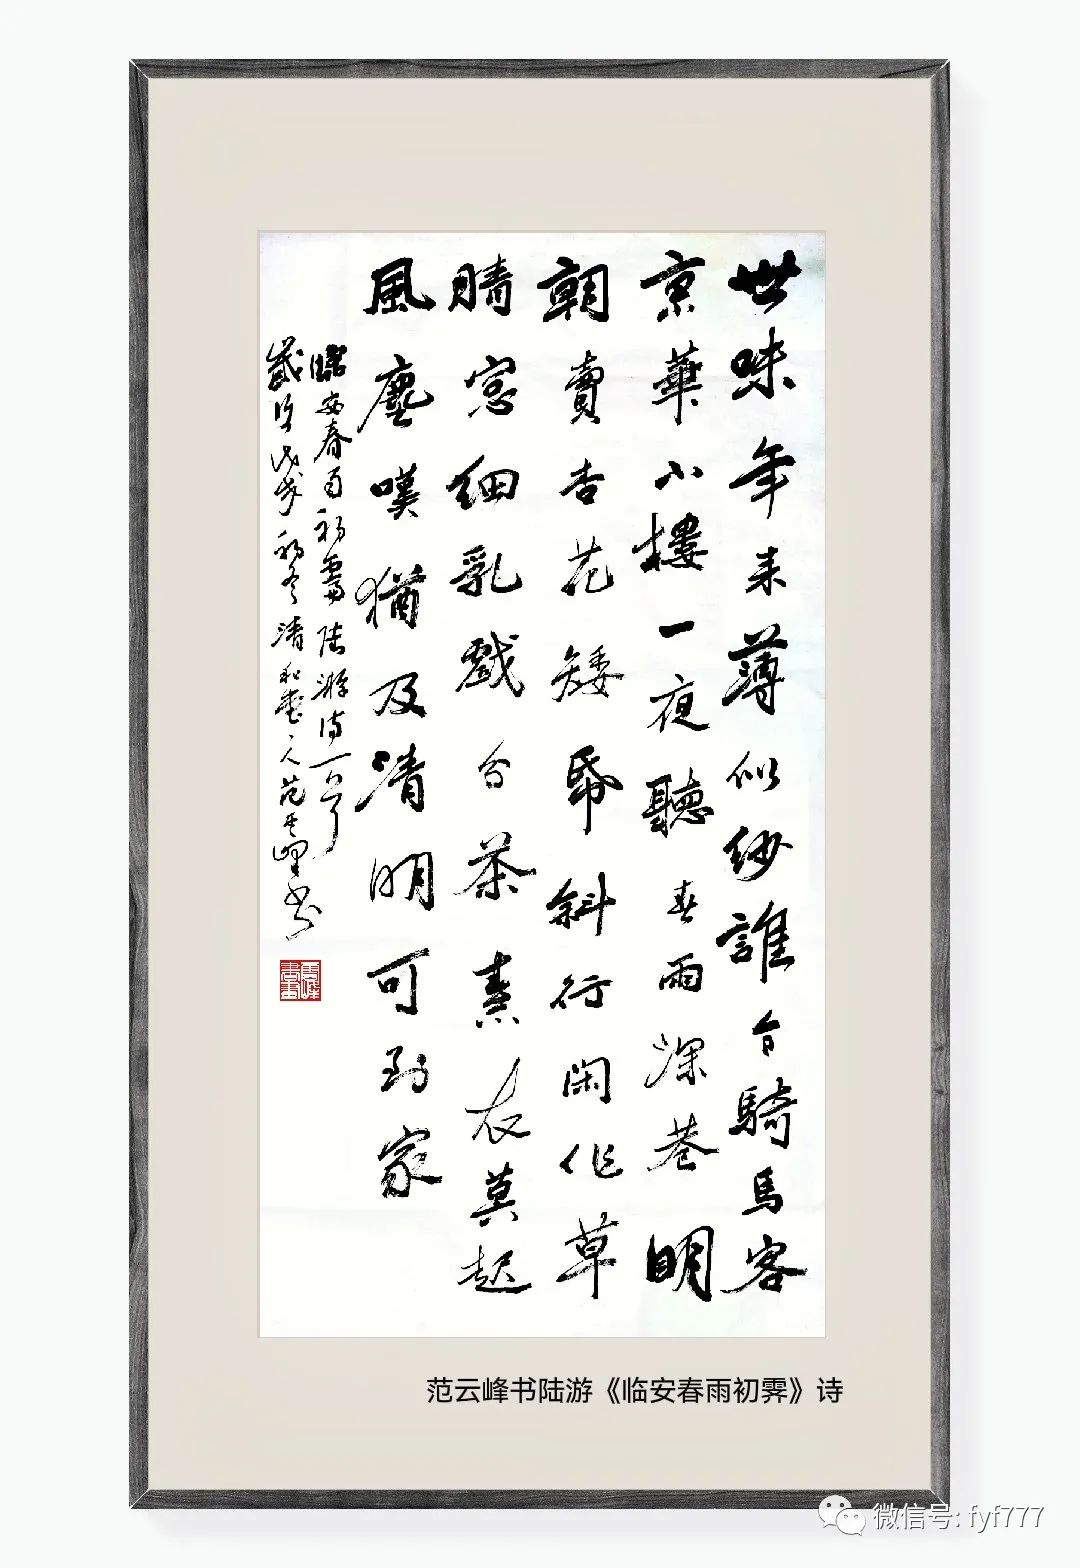 世味年来薄似紗誰令騎馬客
京華小樓一夜聽春雨深巷明
朝賣杏花矮帋斜行閑作草
晴窓細乳戲分茶素衣莫起
風塵嘆猶及清明可到家
臨安春雨初霽陸游詩一首
歲次戊戌初冬清和堂主人范雲峰书
雲峰書畫
范云峰书陆游《临安春雨初霁》诗
微信号: fyf777